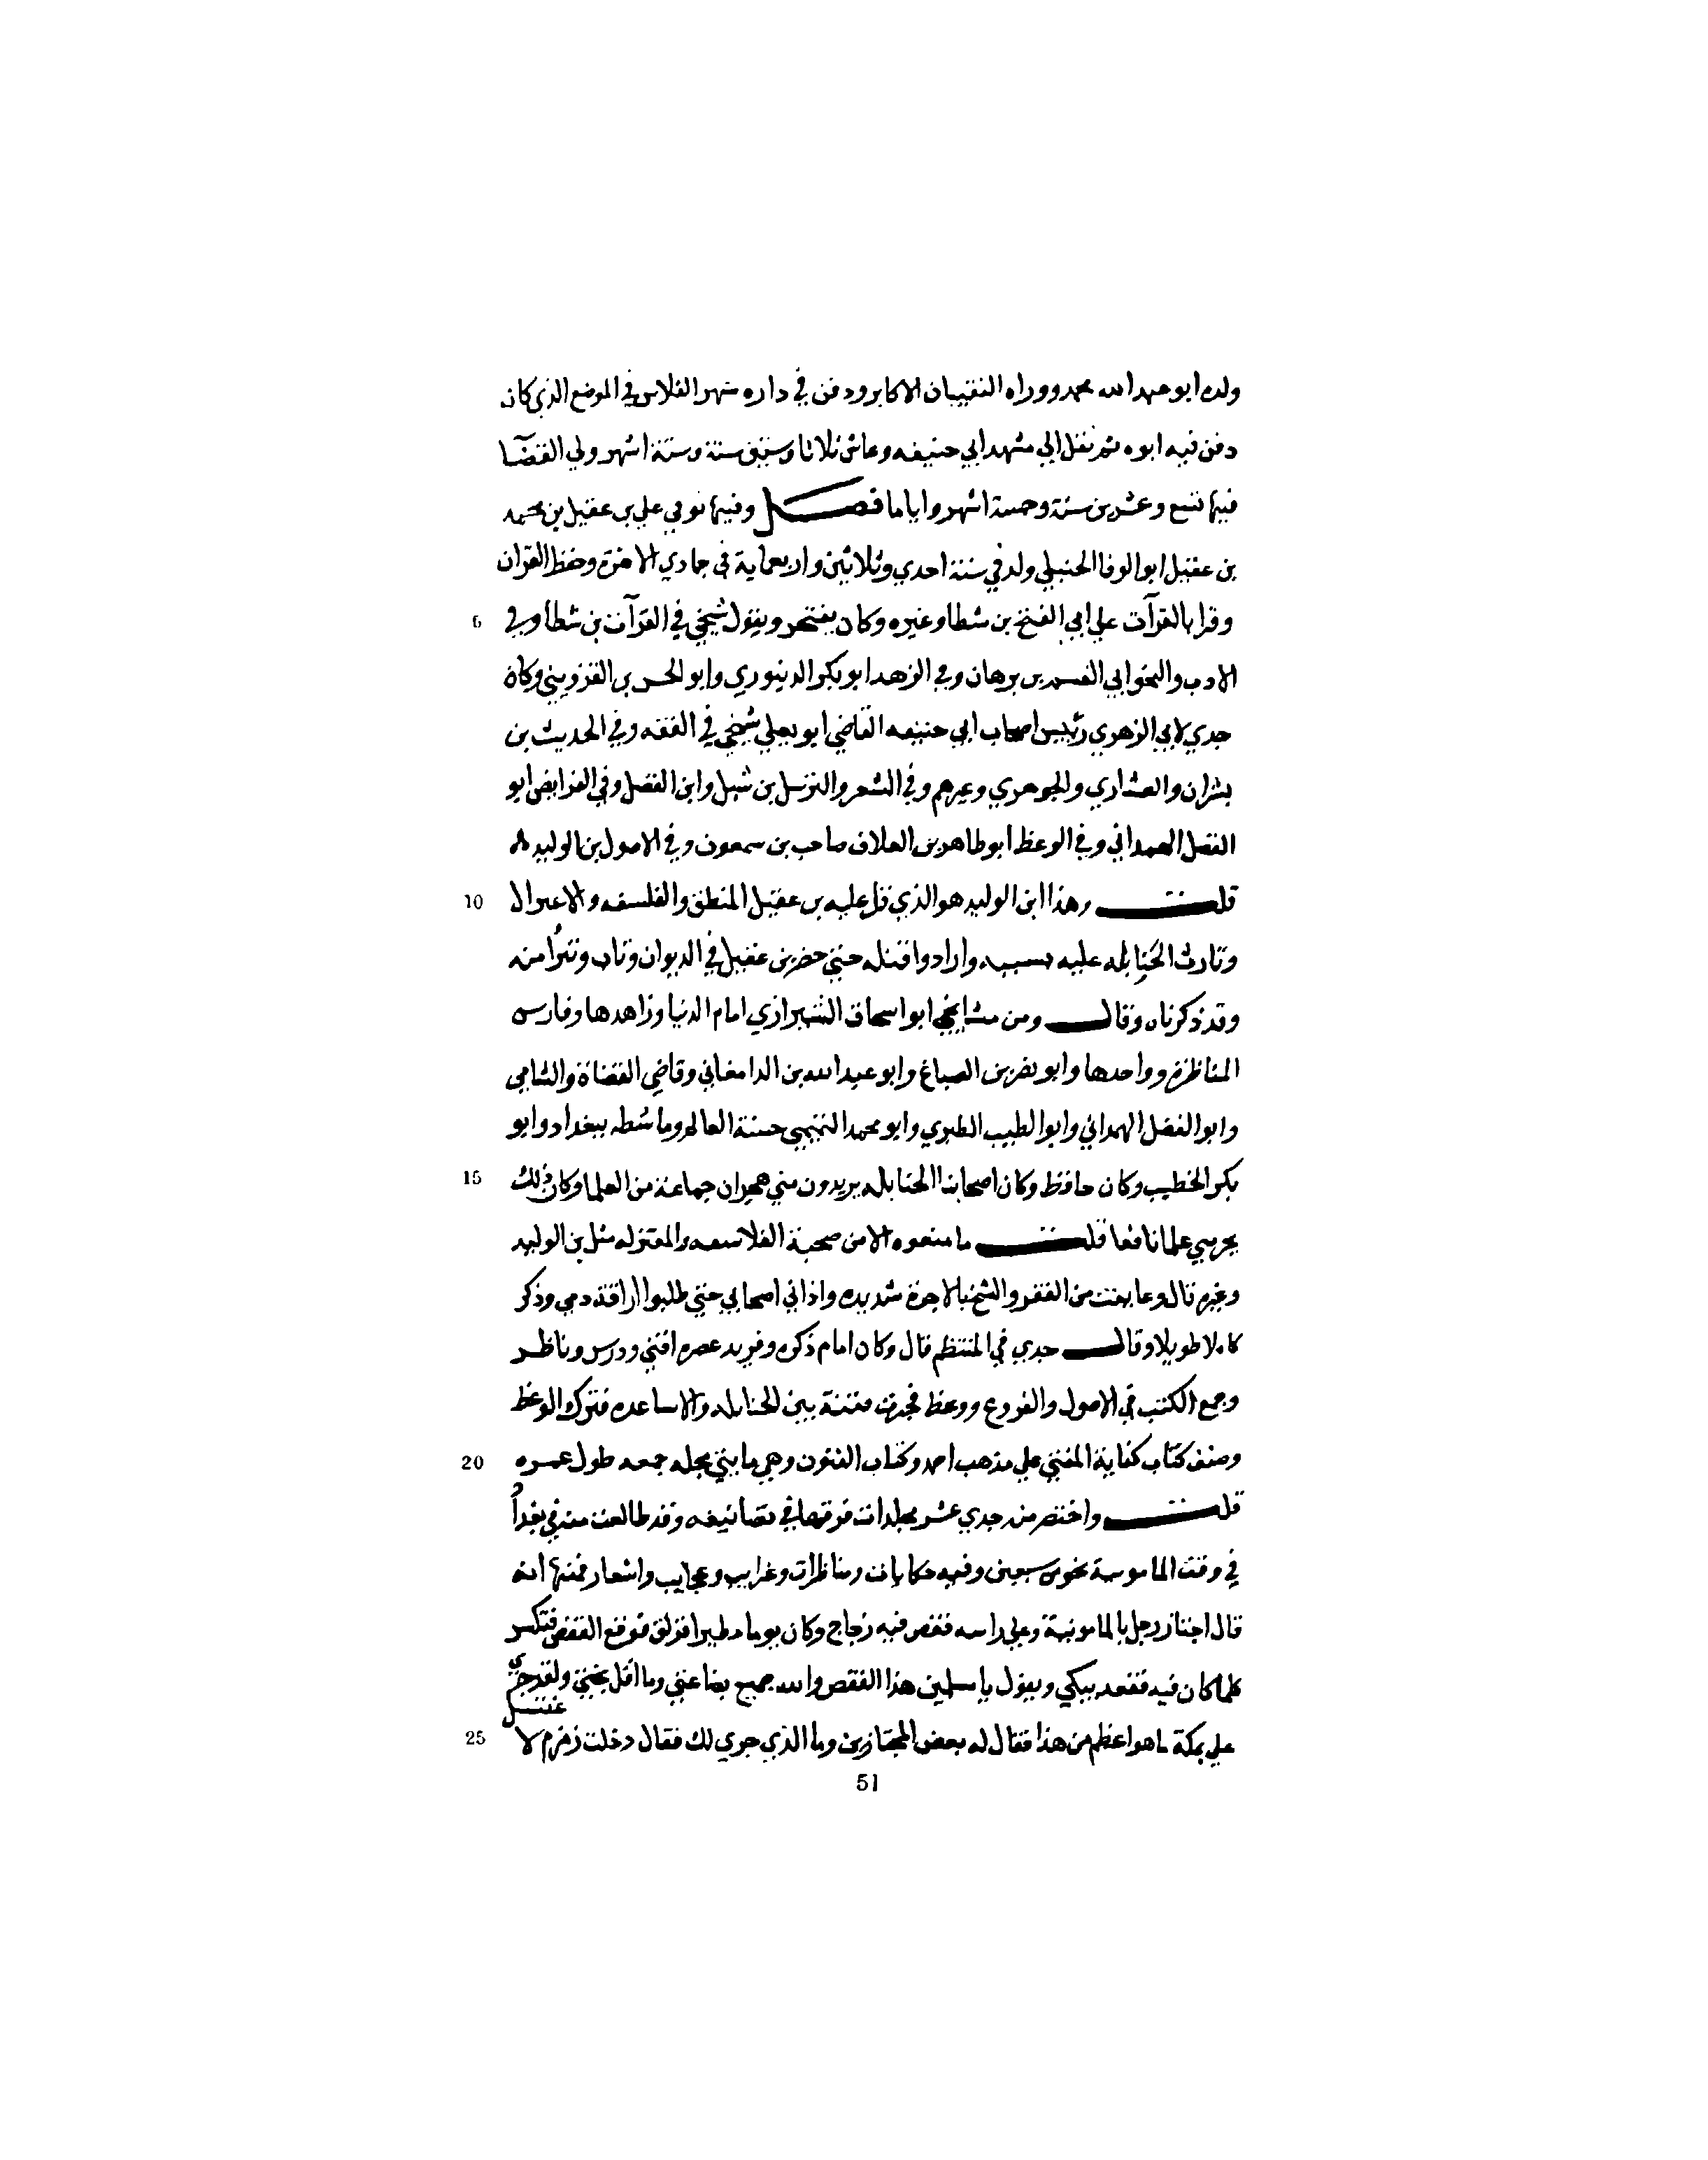 ولده ابو عبد الله محمد ووراه النقيبان الاكابر ودفن في داره بنهر القلايين في الموضع الذي كان
دفن فيه ابوه ثم نقل الي مشهد ابي حنيفه وعاش ثلاثا وستين سنة وستة اشهر ولي القضآ
فيها تسع وعشرين سنة وخمسة اشهر واياما فصل وفيها توفي علي بن عقيل بن محمد
بن عقيل ابو الوفا الحنبلي ولد في سنة احدي وثلاثين واربعماية في جمادي الاخرة وحفظ القرآن
5 وقرا بالقرآت علي ابي الفتح بن شطا وغيره وكان يفتخر ويقول شيخي في القرآت بن شطا وفي
الادب والنحو ابي القسم بن برهان وفي الزهد ابو بكر الدينوري وابو الحسن بن القزويني وكان
جدي لابي الزهري رئيس اصحاب ابي حنيفه القاضي ابو يعلي شيخي في الفقه وفي الحديث بن
بشران والعشاري والجوهري وغيرهم وفي الشعر والترسل بن شبل وابن الفضل وفي الفرايض ابو
الفضل الهمداني وفي الوعظ ابو طاهر بن العلاف صاحب بن سمعون وفي الاصول بن الوليد
10 قلت وهذا ابن الوليد هو الذي قرا عليه بن عقيل المنطق والفلسفه والاعتزال
وثارت الحنابله عليه بسببه وارادوا قتله حتي حضر بن عقيل في الديوان وتاب وتبرأ منه
وقد ذكرناه وقال ومن مشايخي ابو اسحاق الشيرازي امام الدنيا وزاهدها وفارس
المناظرة وواحدها وابو نصر بن الصباغ وابو عبد الله بن الدامغاني وقاضي القضاة والشامي
وابو الفضل الهمداني وابو الطيب الطبري وابو محمد التميمي حسنة العالم وماشطه ببغداد وابو
15 بكر الخطيب وكان حافظ وكان اصحابنا الحنابله يريدون مني هجران جماعة من العلما وكان ذلك
يحرمني علما نافعا قلت ما منعوه الا من صحبة الفلاسفه والمعتزله مثل بن الوليد
وغيره قال وعاينت من الفقر والنسخ بالاجرة شديده واذاني اصحابي حتي طلبوا اراقة دمي وذكر
كاملا طويلا وقال جدي في المنتظم قال وكان امام ذكره وفريد عصره افتي ودرس وناظر
وجمع الكتب في الاصول والفروع ووعظ فجرت فتنة بين الحنابله والاساعره فترك الوعظ
20 وصنف كتاب كفاية المفتي علي مذهب احمد وكتاب الفنون وهي مايتي مجله جمعه طول عمره
قلت واختصر منه جدي عشر مجلدات فرقها في تصانيفه وقد طالعت منه في بغداد
في وقف المامونية نحو من سبعين وفيه حكايات ومناظرات وغرايب وعجايب واشعار فمنها انه
قال اجتاز رجل بالمامونية وعلي راسه قفص فيه زجاج وكان يوما مطيرا فزلق فوقع القفص فتكسر
كلما كان فيه فقعد يبكي ويقول يا مسلمين هذا القفص والله جميع بضاعتي وما اقل بختي ولقد جري
علي بمكة ما هو اعظم من هذا فقال له بعض المجتازين وما الذي جري لك فقال دخلت زمزم لا
غتسل
25
51